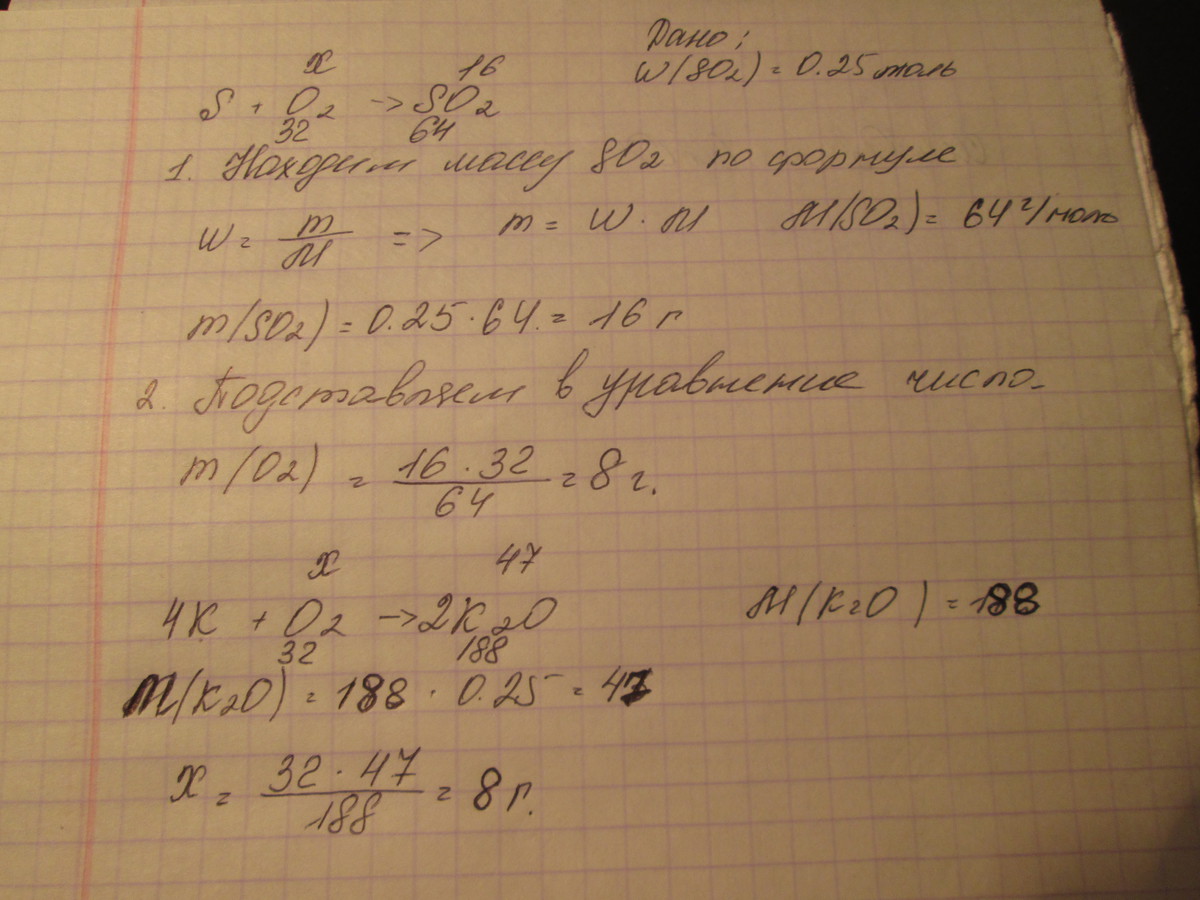 Дано:
W(SO2) = 0.25 моль
x 16
S + O2 → SO2
32 64
1. Находим массу SO2 по формуле
W = m/M => m = W · M M(SO2) = 64 г/моль
m(SO2) = 0.25 · 64. = 16 г
2. Подставляем в уравнение число.
m(O2) = 16 · 32/64 = 8 г.
x 47
4K + O2 → 2K2O M(K2O) = 188
32 188
M(K2O) = 188 · 0.25 = 47
x = 32 · 47/188 = 8 г.